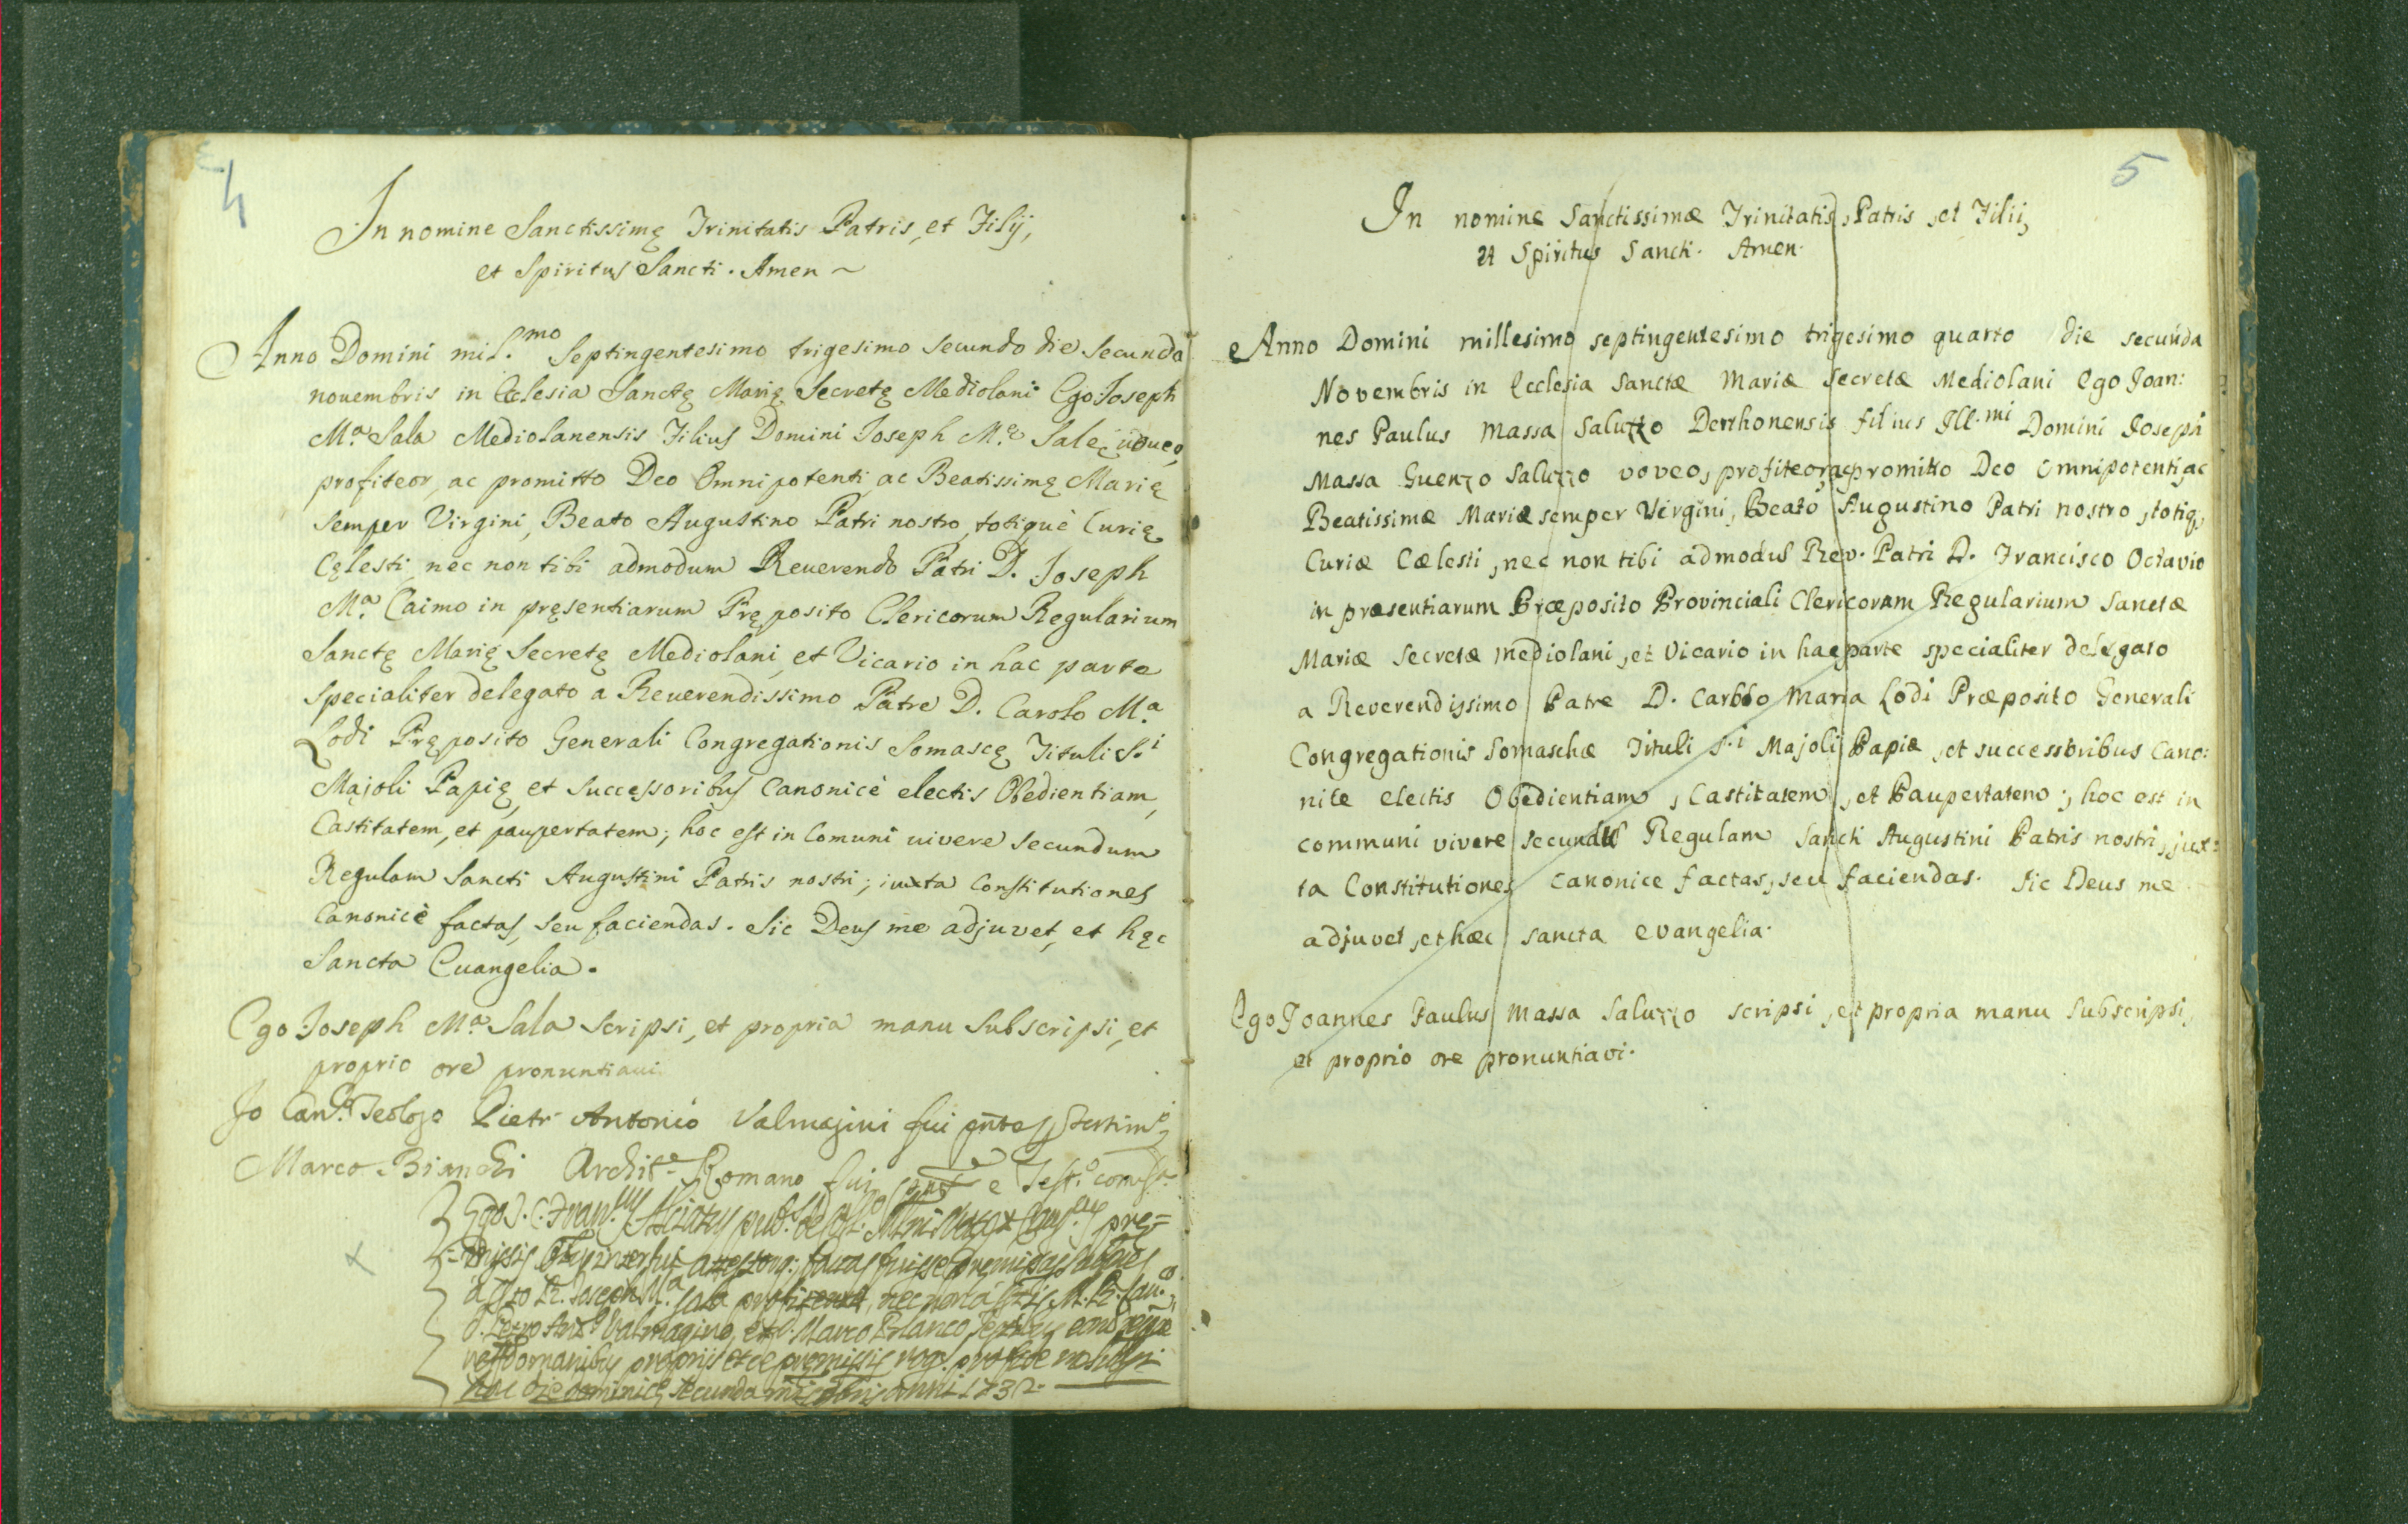 4
In nomine Sanctissimę Trinitatis Patris, et Filij,
et Spiritus Sancti. Amen ~
Anno Domini mil.mo Septingentesimo trigesimo secundo die secunda
nouembris in Ecclesia Sanctę Marię Secretę Mediolani Ego Joseph
M.a Sala Mediolanensis Filius Domini Joseph M.ę Salę uoueo,
profiteor, ac promitto Deo Omnipotenti, ac Beatissimę Marię
semper Virgini, Beato Augustino Patri nostro, totiquè Curię
Cęlesti, nec non tibi admodum Reuerendo Patri D. Joseph
M.a Caimo in pręsentiarum Pręposito Clericorum Regularium
Sanctę Marię Secretę Mediolani, et Vicario in hac parte
specialiter delegato a Reuerendissimo Patre D. Carolo M.a
Lodi Pręposito Generali Congregationis Somascę Tituli S.i
Majoli Papię, et successoribus Canonicè electis Obedientiam,
Castitatem, et paupertatem; hoc est in Comuni uivere secundum
Regulam Sancti Augustini Patris nostri; iuxta Constitutiones
Canonicè factas, seu faciendas. Sic Deus me adjuvet, et hęc
Sancta Euangelia.
Ego Joseph M.a Sala scripsi, et propria manu subscripsi, et
proprio ore pronuntiaui.
Io Can.co Teologo Pietr Antonio Valmagini fui
Marco Bianchi Archit.o Romano fui e Test.o
Ego
interfui factas fuisse
Joseph M.a Sala nec non à
Petro Ant.o Valmagino, et D. Marco Bianco
propriis et de premissis rog.
hac die secunda anni 1732.
5
In nomine Sanctissimæ Trinitatis, Patris, et Filii,
et Spiritus Sancti. Amen.
Anno Domini millesimo septingentesimo trigesimo quarto die secunda
Novembris in Ecclesia Sanctæ Mariæ Secretæ Mediolani Ego Joan:
nes Paulus Massa Saluzzo Derthonensis filius Ill.mi Domini Joseph
Massa Guenzo Saluzzo voveo, profiteor, ac promitto Deo Omnipotenti, ac
Beatissimæ Mariæ semper Virgini, Beato Augustino Patri nostro, totiq,
Curiæ Cælesti, nec non tibi admodū Rev. Patri D. Francisco Octavio
in præsentiarum Præposito Provinciali Clericorum Regularium Sanctæ
Mariæ Secretæ Mediolani, et Vicario in hac parte specialiter delegato
a Reverendissimo Patre D. Carolo Maria Lodi Præposito Generali
Congregationis Somaschæ Tituli S.i Majoli Papiæ, et successoribus Cano:
nice electis Obedientiam, Castitatem, et Paupertatem; hoc est in
communi vivere secundū Regulam Sancti Augustini Patris nostri, jux:
ta Constitutiones canonice factas, seu faciendas. Sic Deus me
adjuvet, et hæc sancta evangelia.
Ego Joannes Paulus Massa Saluzzo scripsi, et propria manu subscripsi,
et proprio ore pronuntiavi.